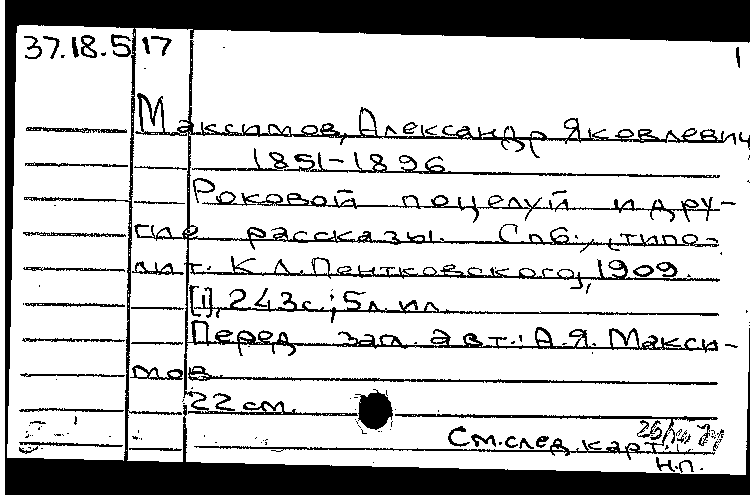 37.18.5 17 1
Максимов, Александр Яковлевич
1851-1896
Роковой поцелуй и дру-
гие рассказы. Спб., типо-
лит. К.Л.Пентковского, 1909.
[1], 243с.; 5л. ил.
Перед загл. авт.: А.Я. Макси-
мов.
22 см.
См. след. карт.
Н.П.